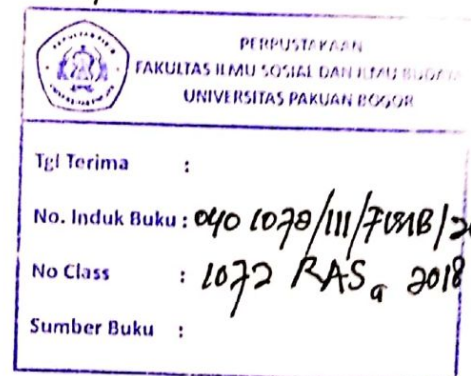 PERPUSTAKAAN
FAKULTAS ILMU SOSIAL DAN ILMU BUDAYA
UNIVERSITAS PAKUAN BOGOR
Tgl Terima :
No. Induk Buku : 040 1078/III/FISIB/20
No Class : 1072 RAS a 2018
Sumber Buku :